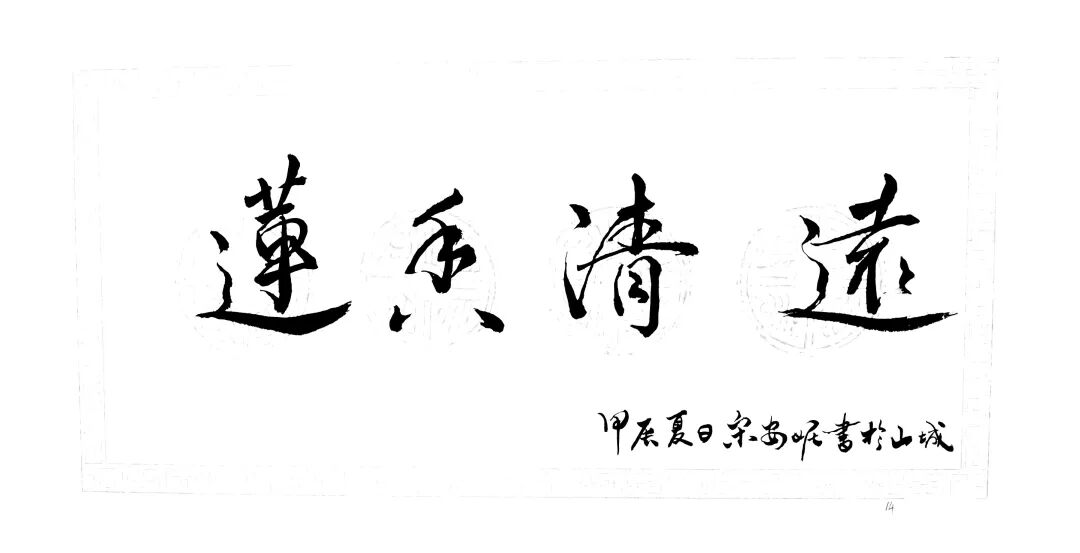 蓮香清遠
甲辰夏日宋安岷書於山城
14